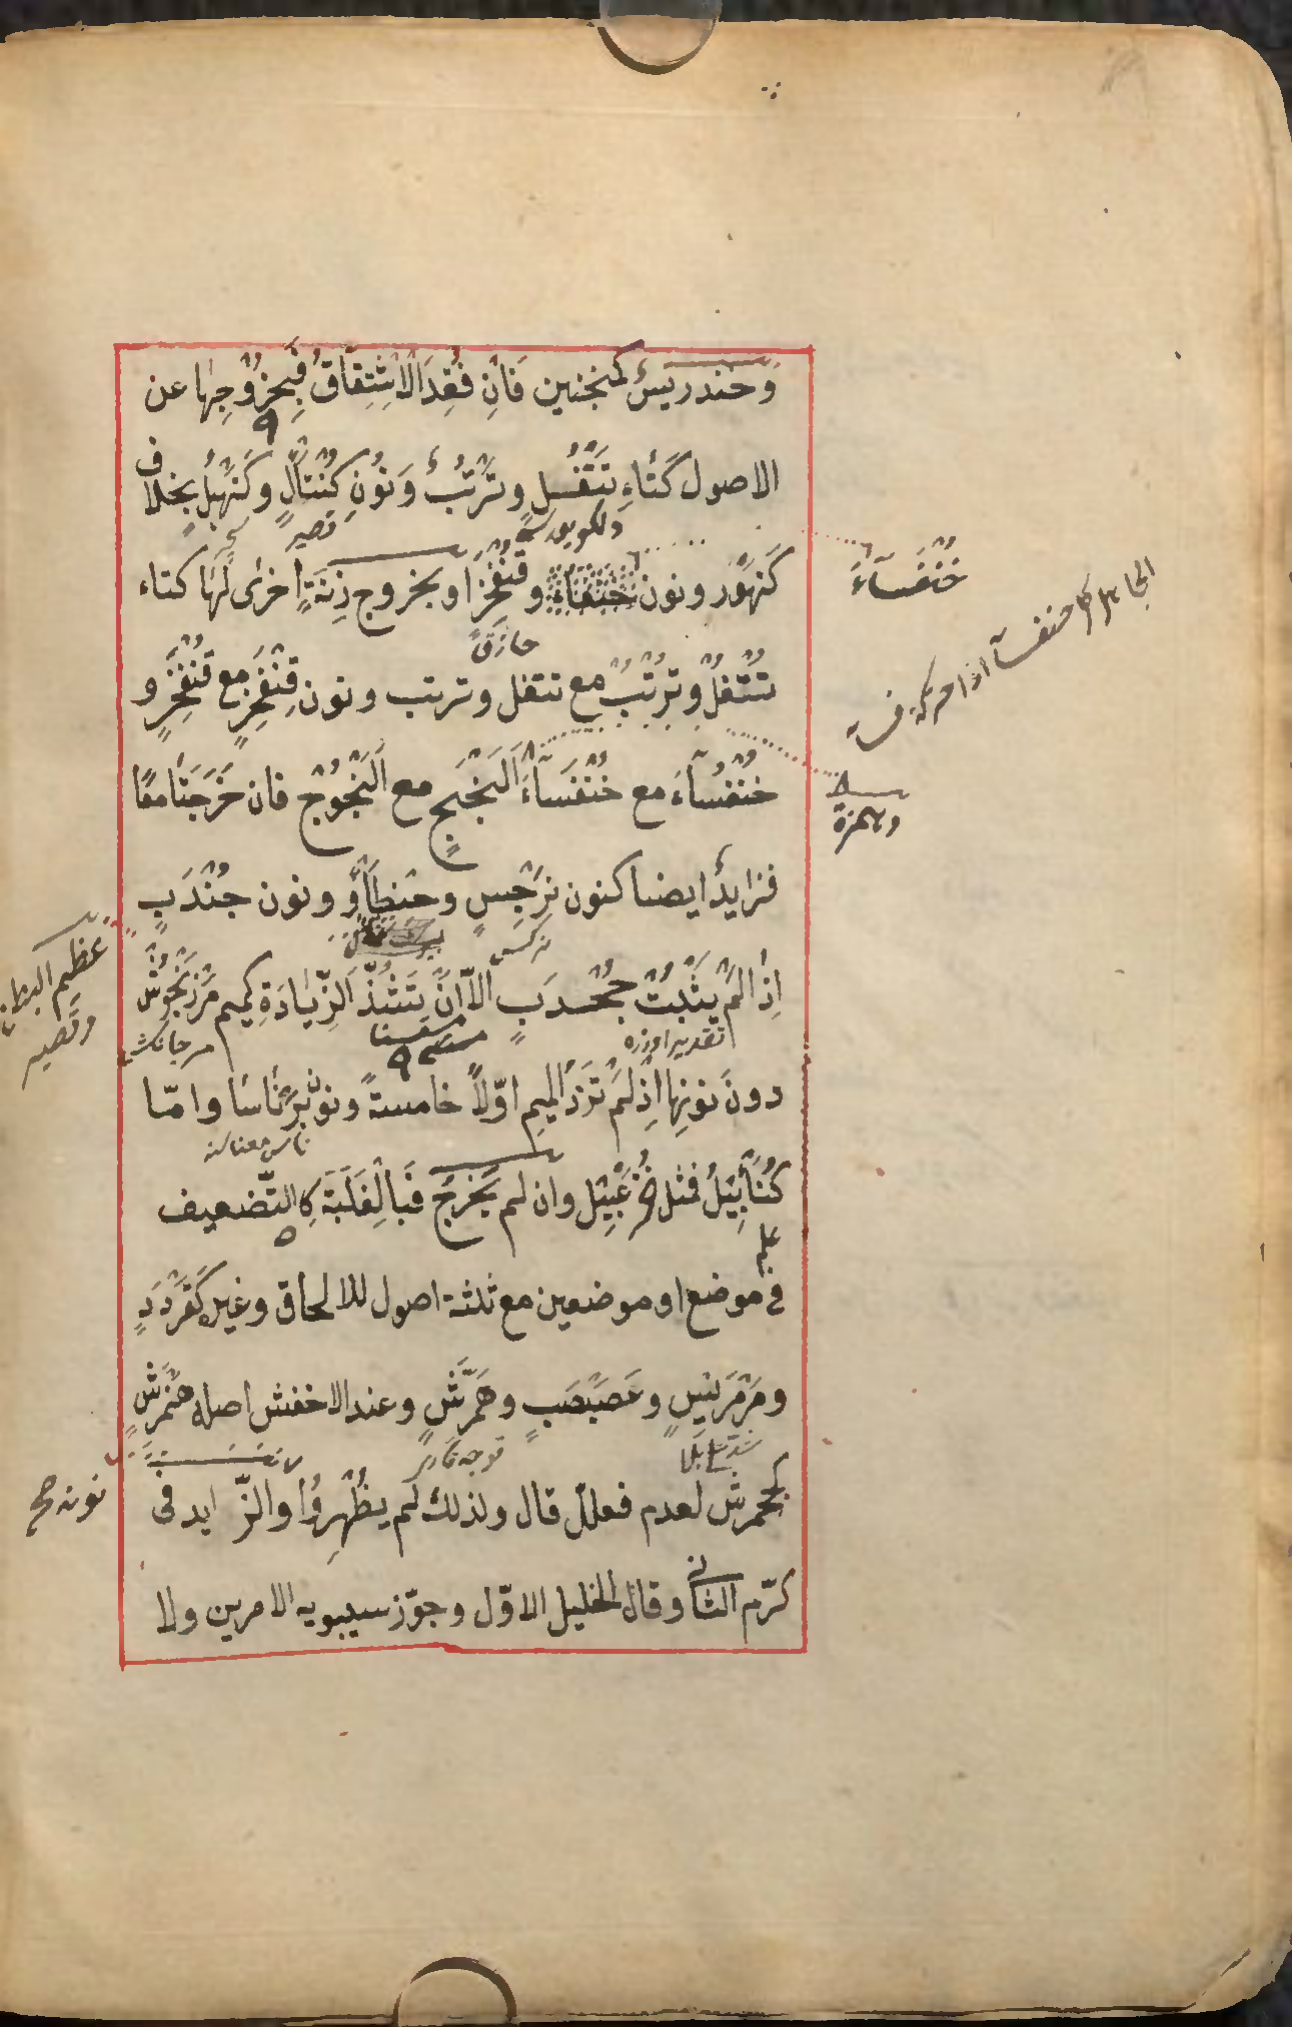 وَخندريسُ كمنجنين فَاِنْ فُقِدَ الْاِشْتِقَاقُ فَبِخُرُوْجِهَا عن
الاصول كَتَاءِ تَتْفُلٍ وتُرْتَبُ وَنُوْنِ كُنْتَأْلٍ وكَنَهْبُلٍ بخلاف
كَنَهْوَر ونون خنفساء وقِنْفَخْرٍ او بخروج زِنَةٍ اُخرٰى لَهَا كتاء
تُتْفُلٍ وتُرْتُبٍ مع تتفل وترتب ونون قِنْفَخْرٍ مع قُنْفَخْرٍ و
خُنْفُسَآءَ مع خُنْفَسَآءَ اَلَنْجَجٍ مع اَلَنْجُوْج فان خَرَجَتَا معًا
فزايدٌ ايضا كنون نَرْجِسٍ وحِنْطَأْوٍ ونون جُنْدَبٍ
اِذْ الَمْ يَثْبُتْ جُخْدَبٍ اِلَّا اَنْ تَشُذَّ الزِّيَادَةِ كميم مَرْزَنْجُوْشٍ
دونَ نونِهَا اِذْ لَمْ تَزِدْ الميم اوّلًا خامسةً ونون بَرْنَاسَا وامّا
كُنَأْبِيْلُ فمثل خُزَعْبِيْلٍ وان لم يَخْرُجْ فَبَالْغَلَبَةِ كالتّضعيف
فى موضع او موضعين مع ثلثة اصول للالحاق وغيره كَقَرْدَدٍ
ومَرْمَرِيْسٍ وعَصَبْصَبٍ وهَمَّرِشٍ وعند الاخفش اصله هَنْمَرِشٍ
كجحمرش لعدم فعلّل قال ولذلك لم يظْهِرُوْا والزّايد فى
كرّم الثانى وقال الخليل الاوّل وجوّز سيبويه الامرين ولا
خُنْفَسَآءَ
وهمزة
عظيم البطن
وقصير
نونه صح
قصير
نركس